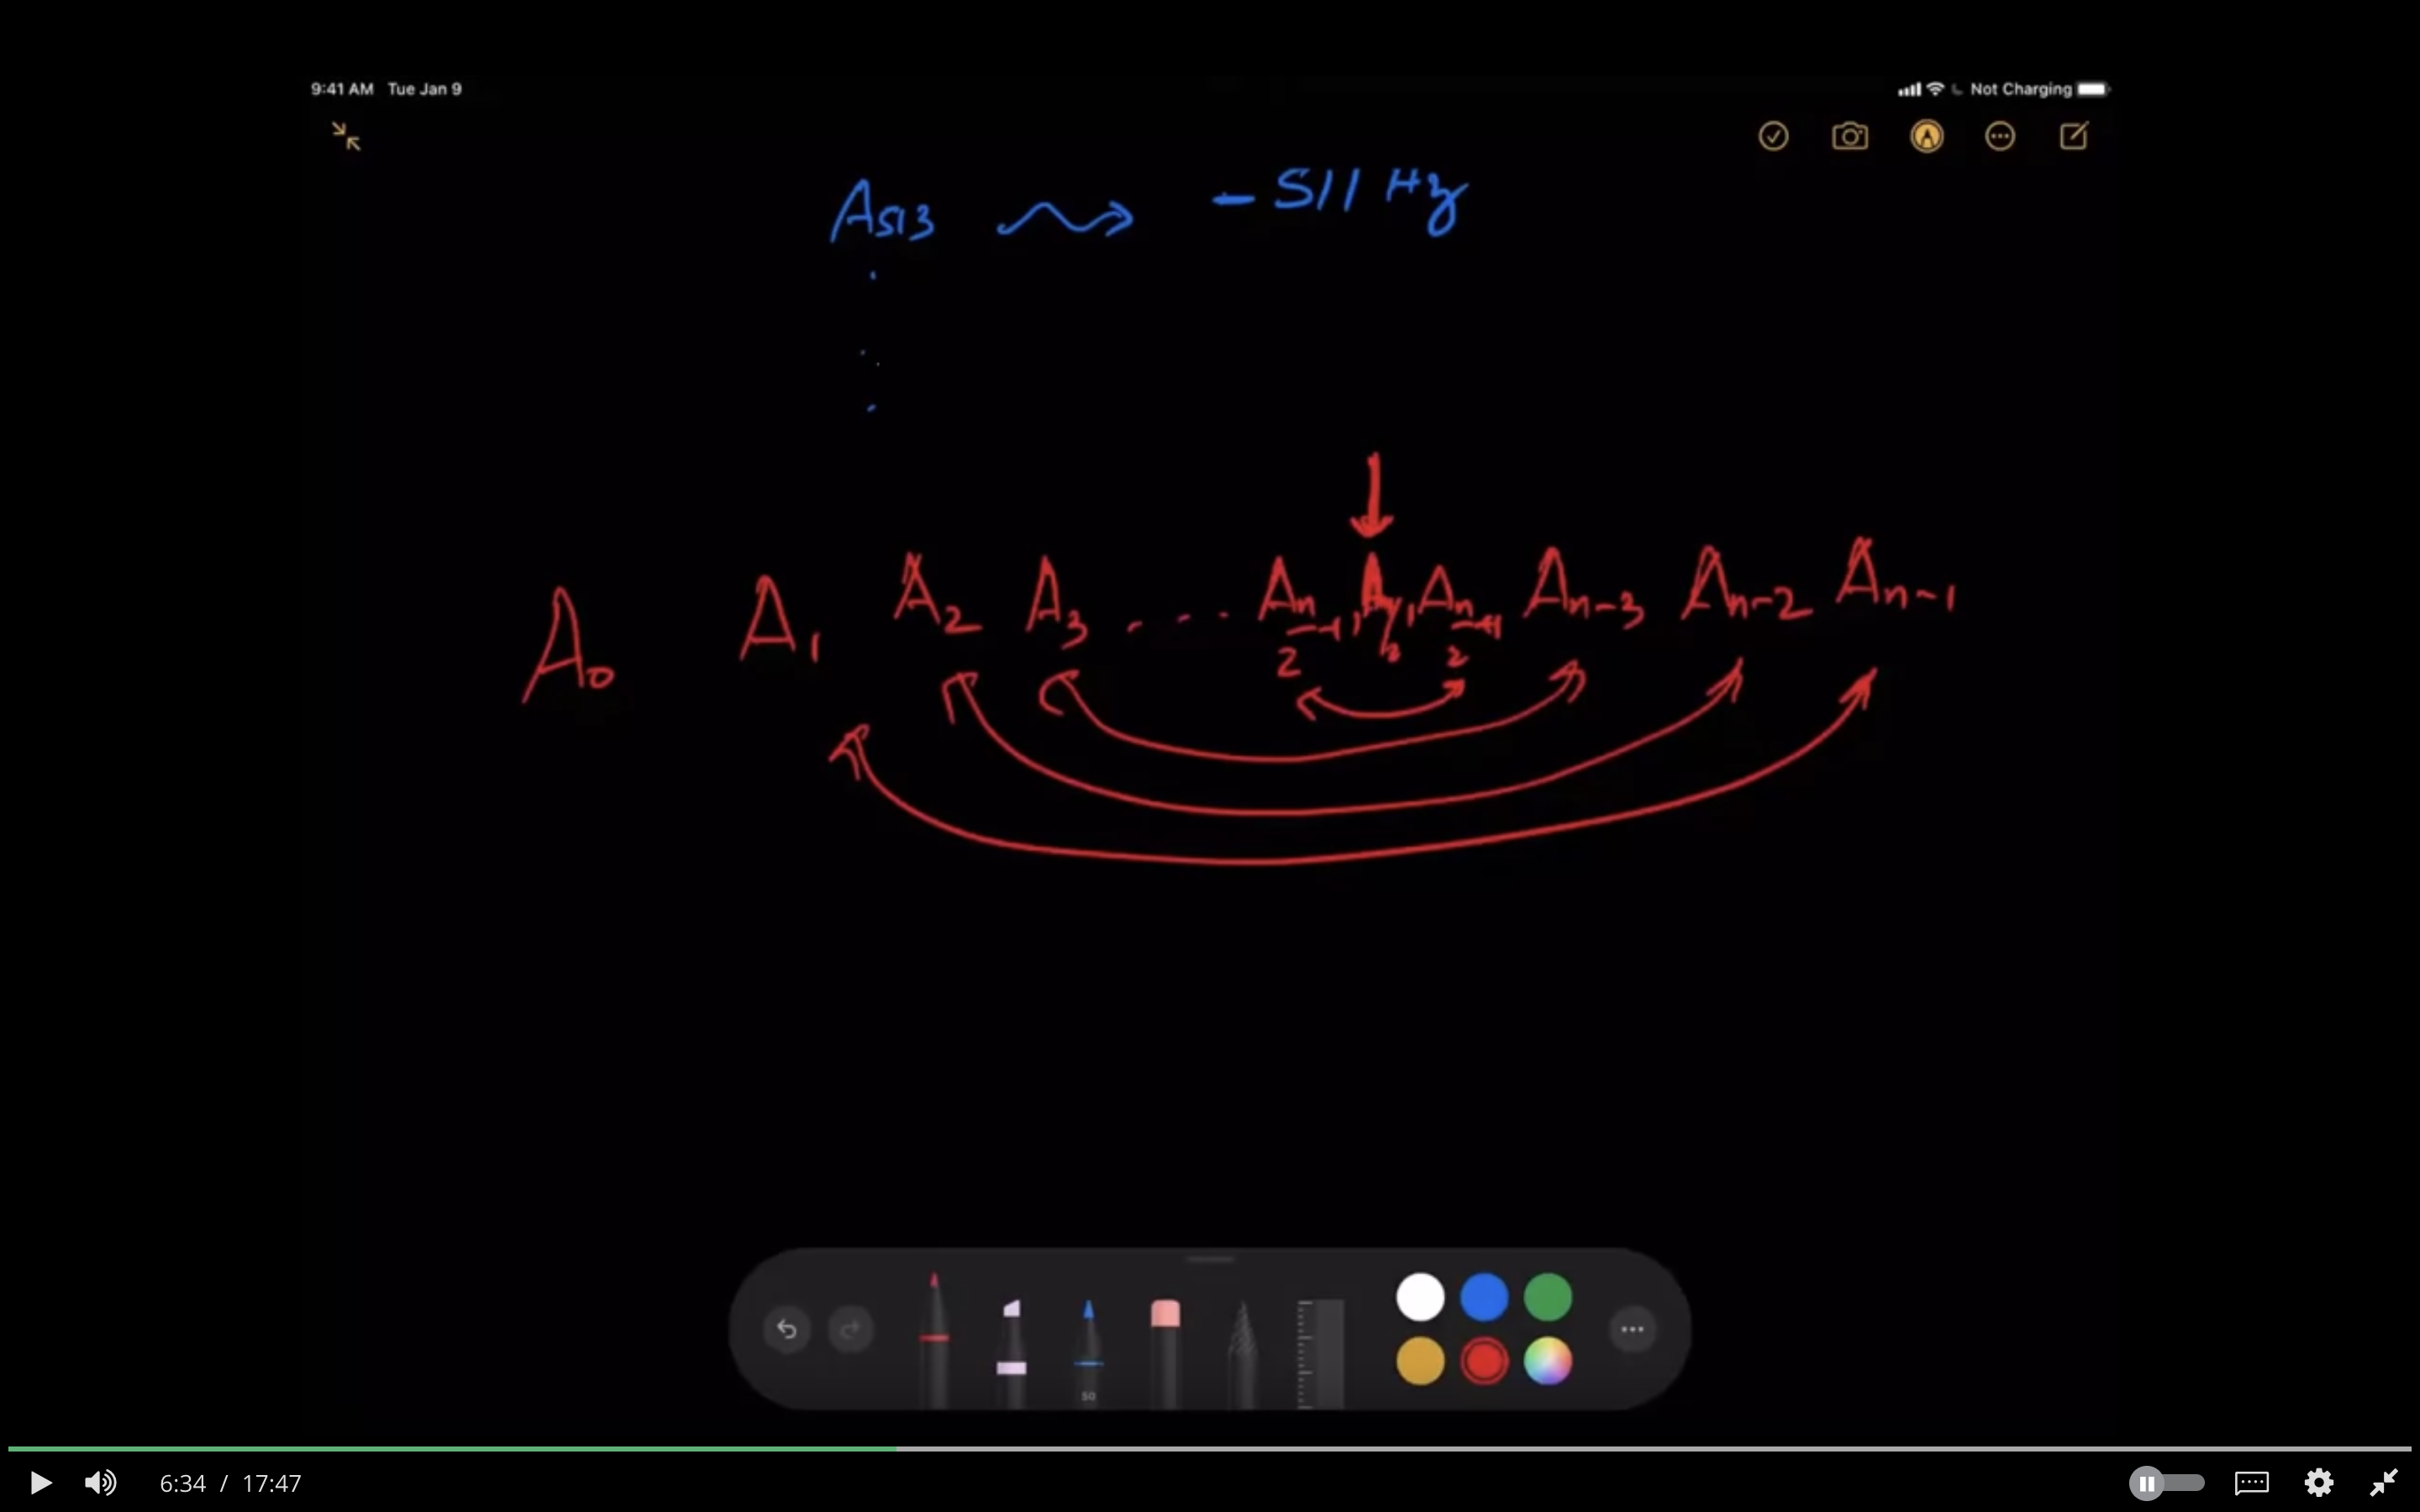 9:41 AM Tue Jan 9 Not Charging
A₅₁₃ → - 511 Hz
A₀ A₁ A₂ A₃ . . . Aₙ/₂₋₁, Aₙ/₂, Aₙ/₂₊₁ Aₙ₋₃ Aₙ₋₂ Aₙ₋₁
50
6:34 / 17:47